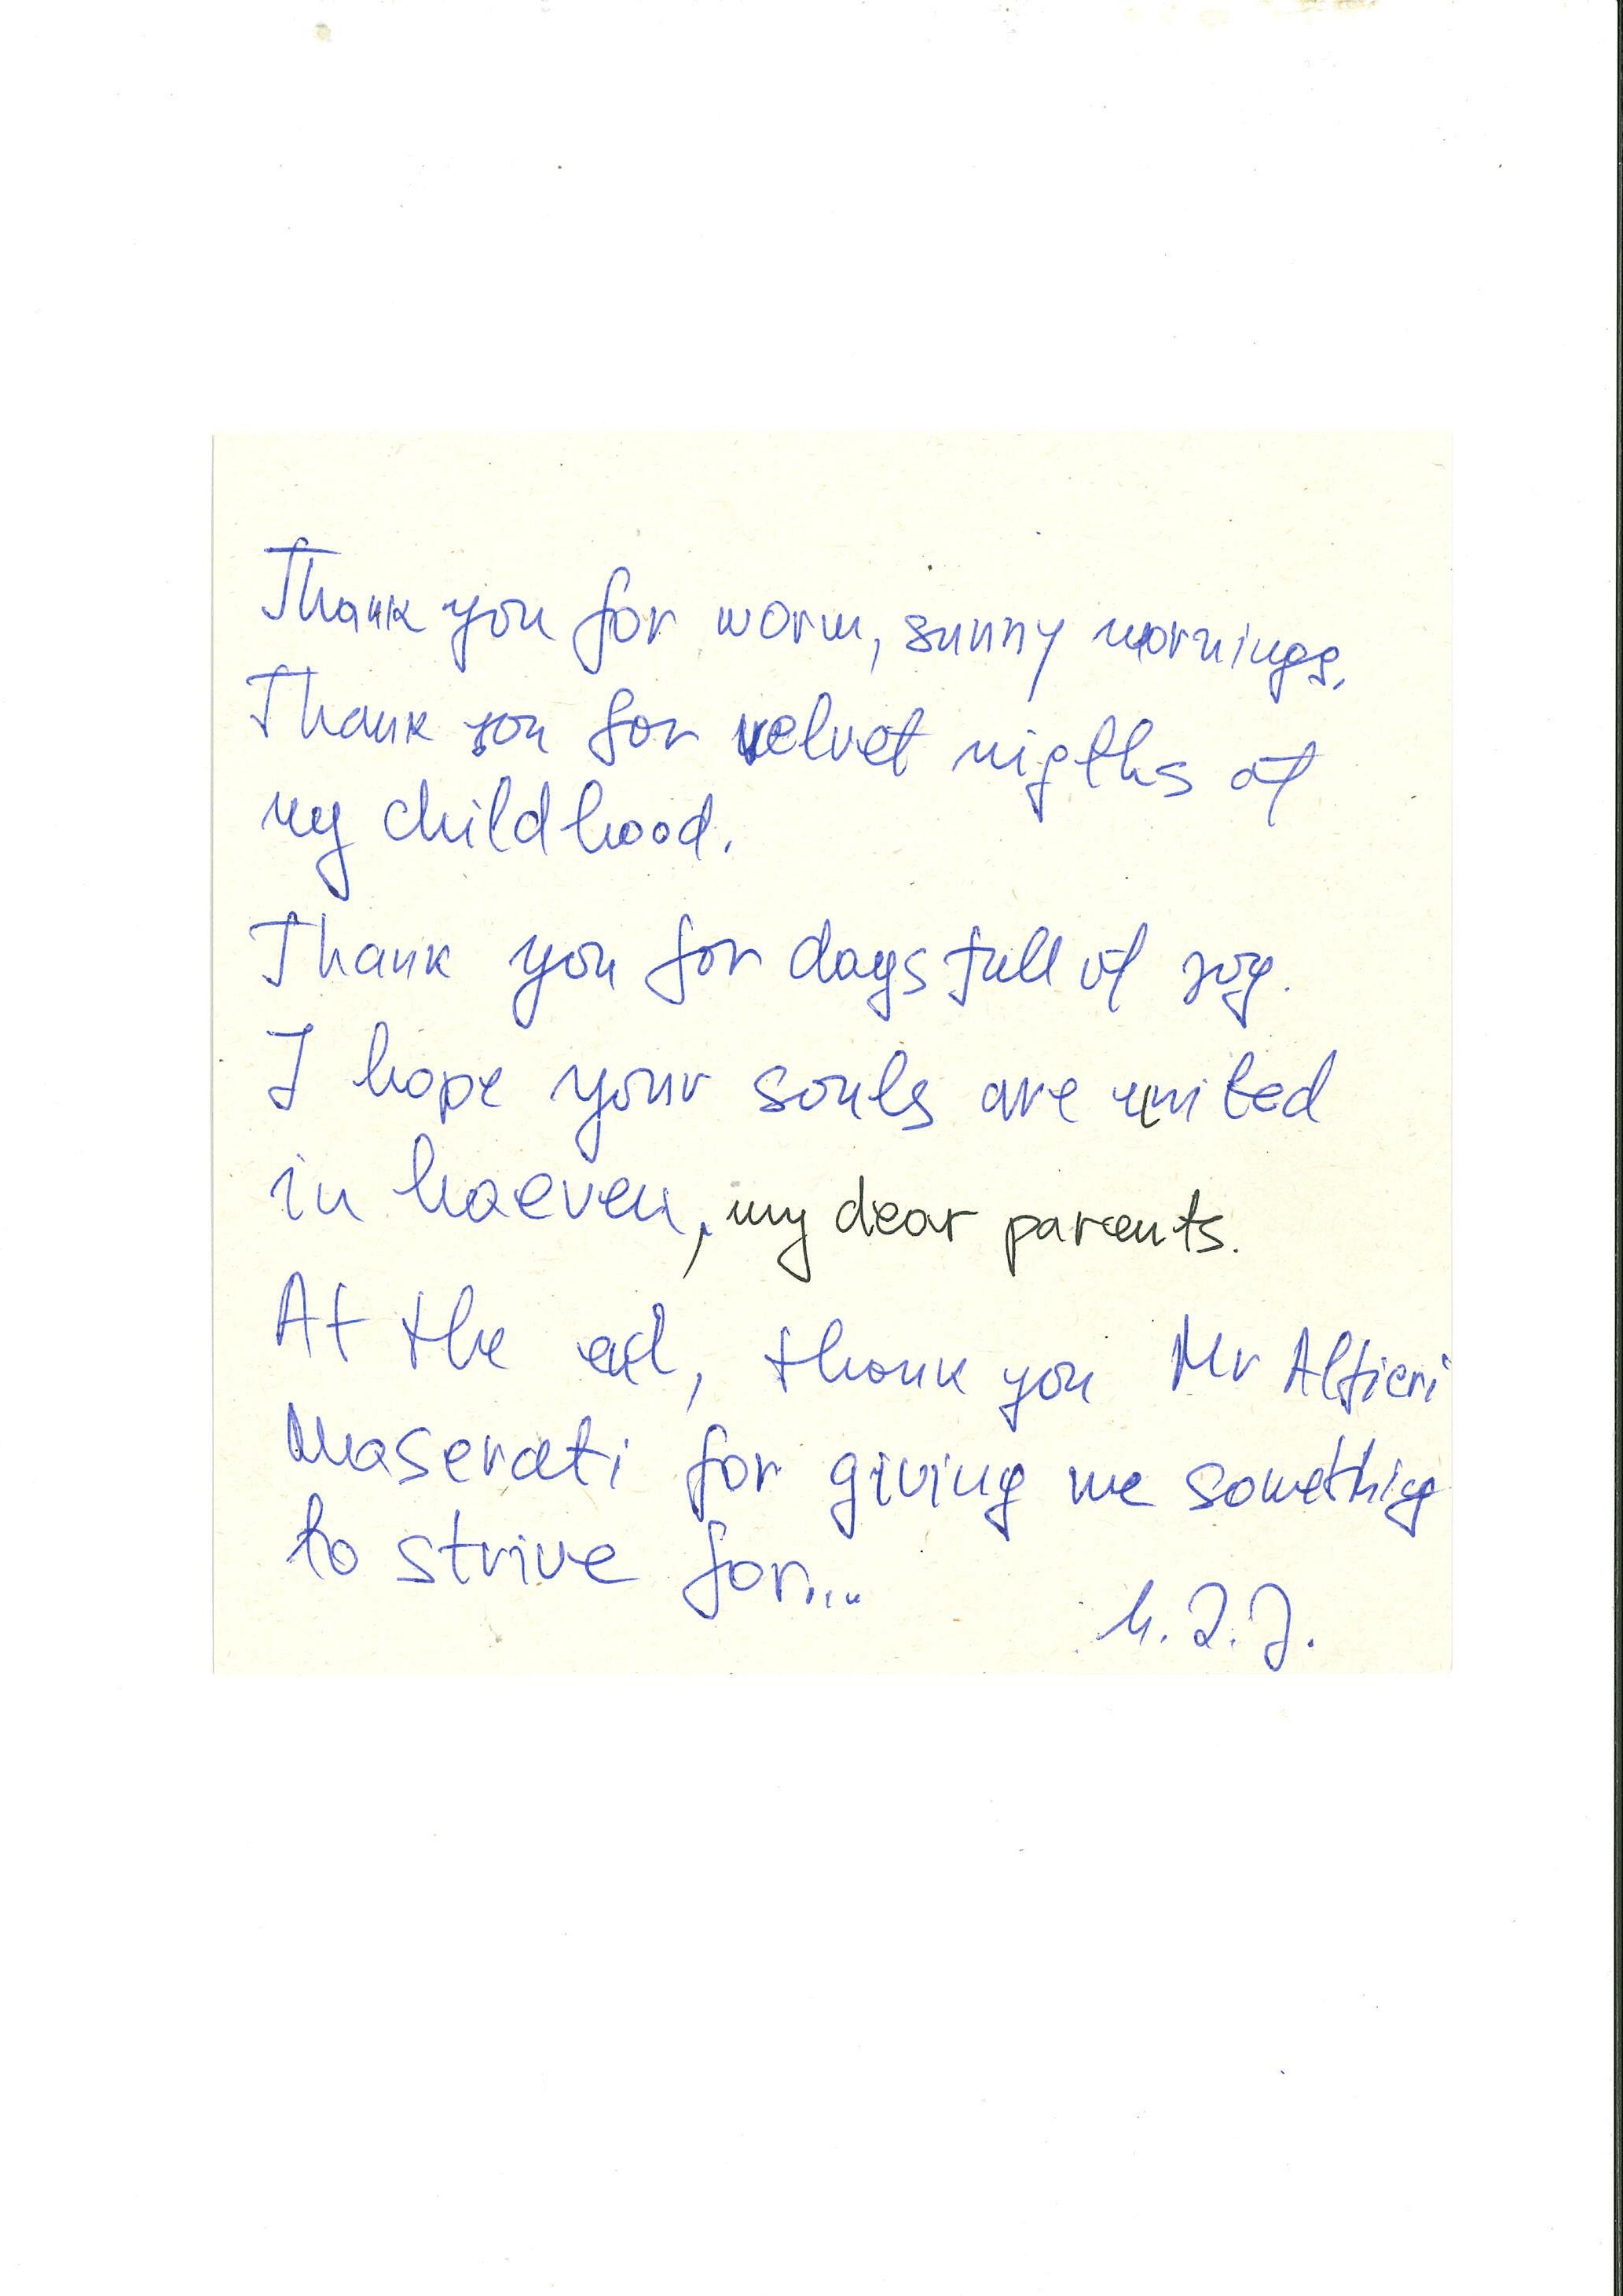 Thank you for worm, sunny mornings.
Thank you for velvet nigths of
my childhood.
Thank you for days full of joy.
I hope your souls are united
in haeven, my dear parents.
At the end, thank you Mr Alfieri
Maserati for giving me something
to strive for...